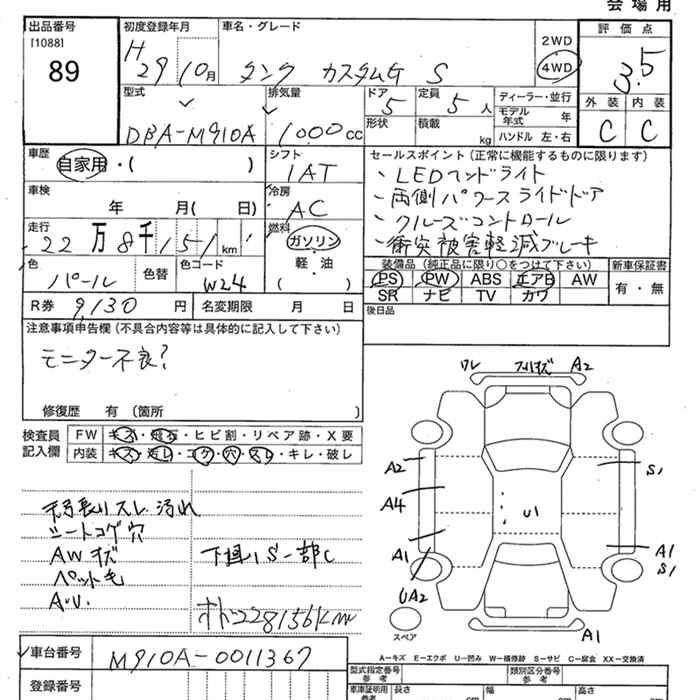 会場用
出品番号
[1088]
89
初度登録年月
H 29 10月
車名・グレード
タンク カスタムG S
2WD
4WD
評価点
3.5
外装 内装
C C
型式
DBA-M910A
排気量
1000cc
ドア
5
定員
5人
形状
積載
kg
ディーラー・並行
モデル年式 年
ハンドル 左・右
車歴
自家用・( )
シフト
1AT
車検
年 月( 日)
冷房
AC
走行
22万8千151km
燃料
ガソリン
軽・油
( )
色
パール
色替
色コード
W24
R券 9,130円
名変期限 月 日
セールスポイント(正常に機能するものに限ります)
・LEDヘッドライト
・両側パワースライドドア
・クルーズコントロール
・衝突被害軽減ブレーキ
装備品(純正品に限り○をつけて下さい)
新車保証書
PS PW ABS エアB AW
SR ナビ TV カワ
有・無
後日品
注意事項申告欄(不具合内容等は具体的に記入して下さい)
モニター不良?
修復歴 有(箇所 )
検査員記入欄
FW キズ・飛石・ヒビ割・リペア跡・X要
内装 キズ・汚レ・コゲ・穴・スレ・キレ・破レ
スレ 汚れ
シートコゲ穴
AWキズ
ペット毛
A.U.
下廻りS一部C
228156km
ワレ
A2
A2
A4
A1
UA2
U1
S1
A1
S1
A1
スペア
A−キズ E−エクボ U−凹み W−補修跡 S−サビ C−腐食 XX−交換済
車台番号 M910A-0011367
登録番号
型式指定番号 参考
類別区分番号 参考
車庫証明用 参考
長さ cm
幅 cm
高さ cm